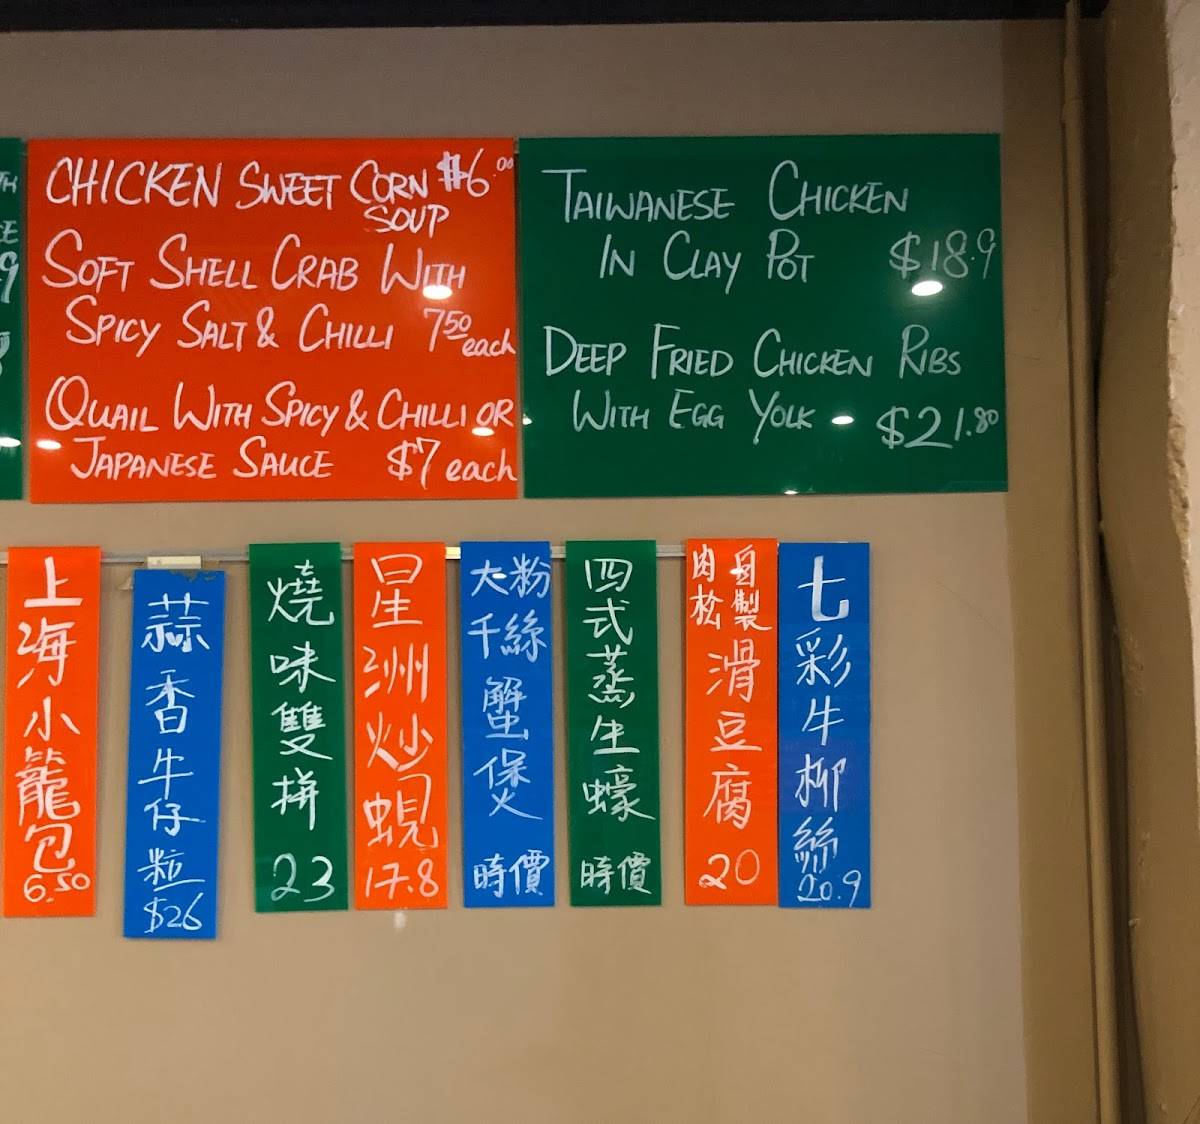 TH
CE
9
CHICKEN SWEET CORN $6.00
SOUP
SOFT SHELL CRAB WITH
SPICY SALT & CHILLI 7.50 each
QUAIL WITH SPICY & CHILLI OR
JAPANESE SAUCE $7 each
TAIWANESE CHICKEN
IN CLAY POT $18.9
DEEP FRIED CHICKEN RIBS
WITH EGG YOLK $21.80
上海小籠包
6.50
蒜香牛仔粒
$26
燒味雙拼
23
星洲炒蜆
17.8
大千
粉絲
蟹煲
時價
四式蒸生蠔
時價
自製
肉松
滑豆腐
20
七彩牛柳絲
20.9